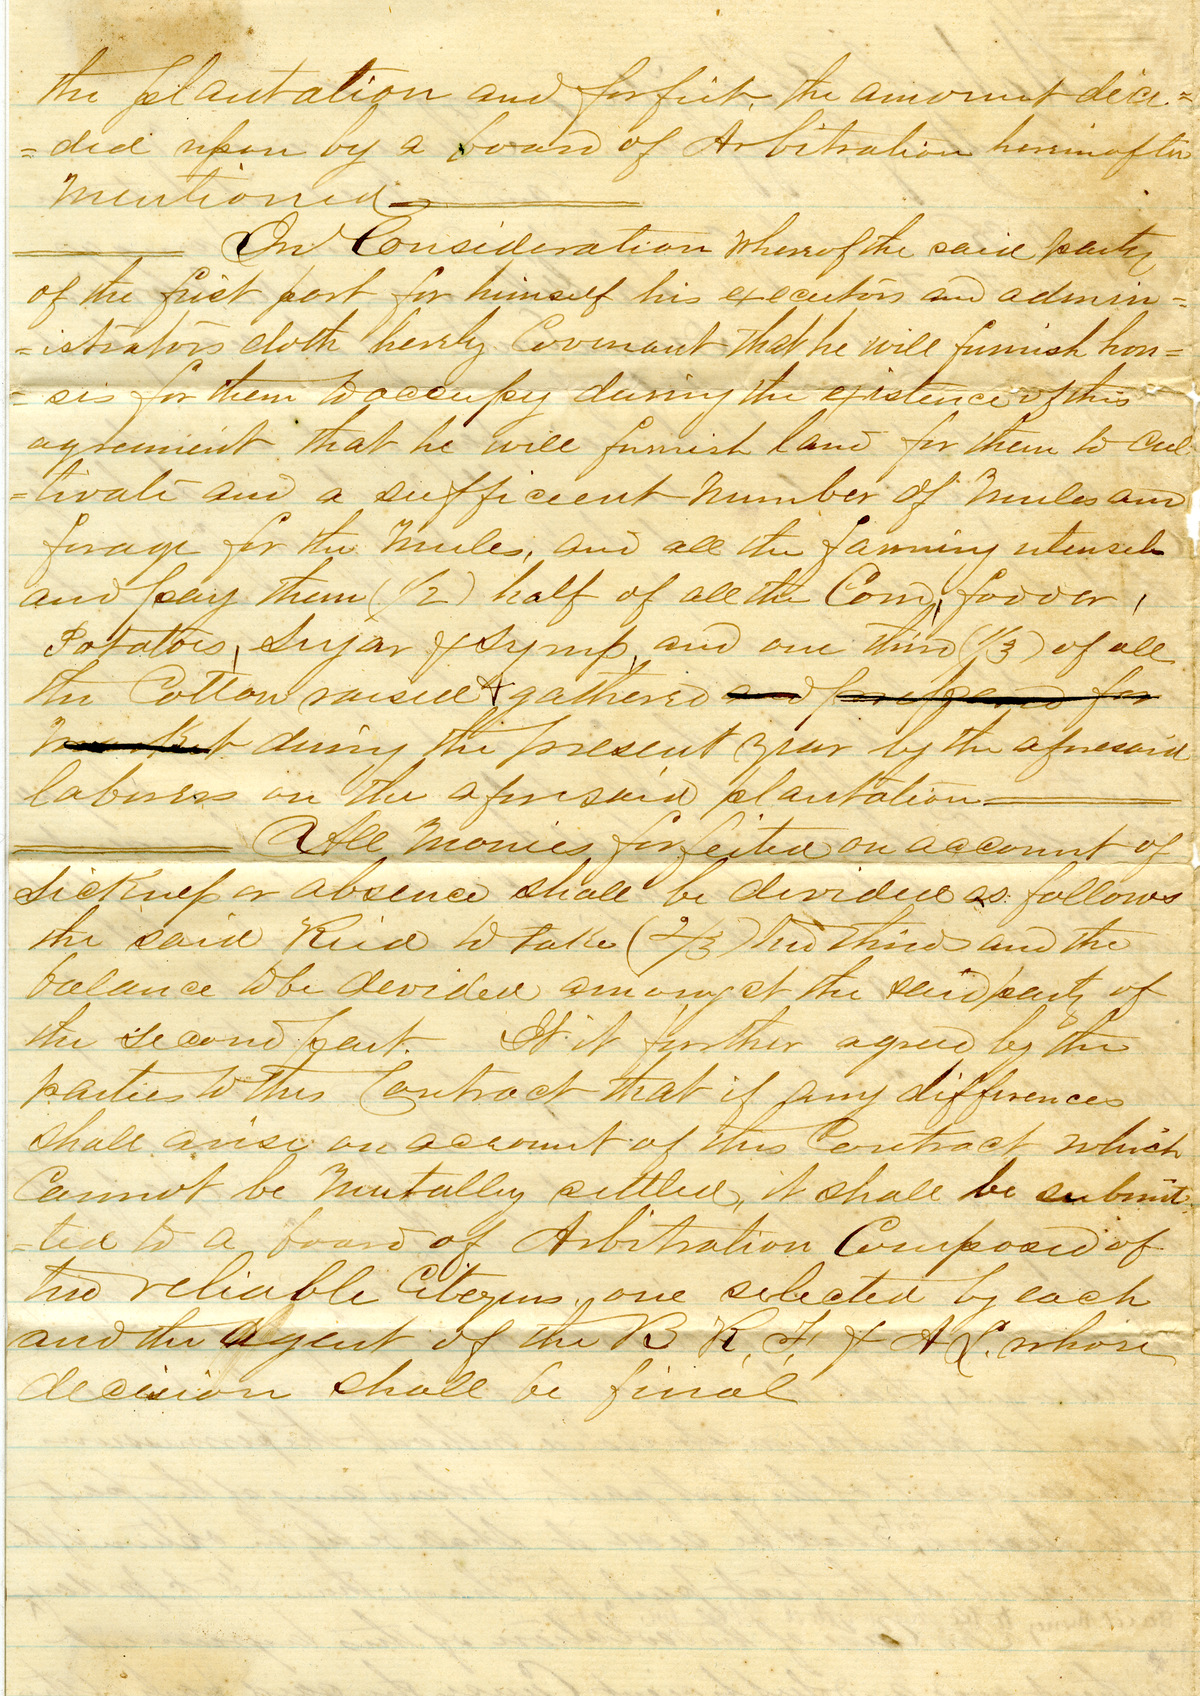 the plantation and forfeit, the amount deci=
=ded upon by a board of Arbitration hereinafter
Mentioned
In Consideration Whereof the said party
of the first part for himself his executors and admin=
=istrators doth hereby Covenant that he will furnish hou=
=ses for them to occupy during the existence of this
agreement that he will furnish land for them to cul
=tivate and a sufficient Number of Mules and
forage for the Mules, and all the farming utensels
and pay them (1/2) half of all the Corn, fodder,
Potatoes, Sugar & Syrup, and one third (1/3) of all
the Cotton raised & gathered and prepared for
Market during the present year by the aforesaid
laborers on the aforesaid plantation
All Monies forfeited on account of
Sickness or absence shall be devided as follows
the said Reid to take (2/3) two thirds and the
balance to be devided amongst the said party of
the second part. It it further agreed by the
parties to this Contract that if any differences
shall arise on account of this Contract which
Cannot be Mutally settled, it shall be submit=
=ted to a board of Arbitration Composed of
two reliable Citizens, one selected by each
and the Agent of the B R, F, & A L. whose
decision shall be final